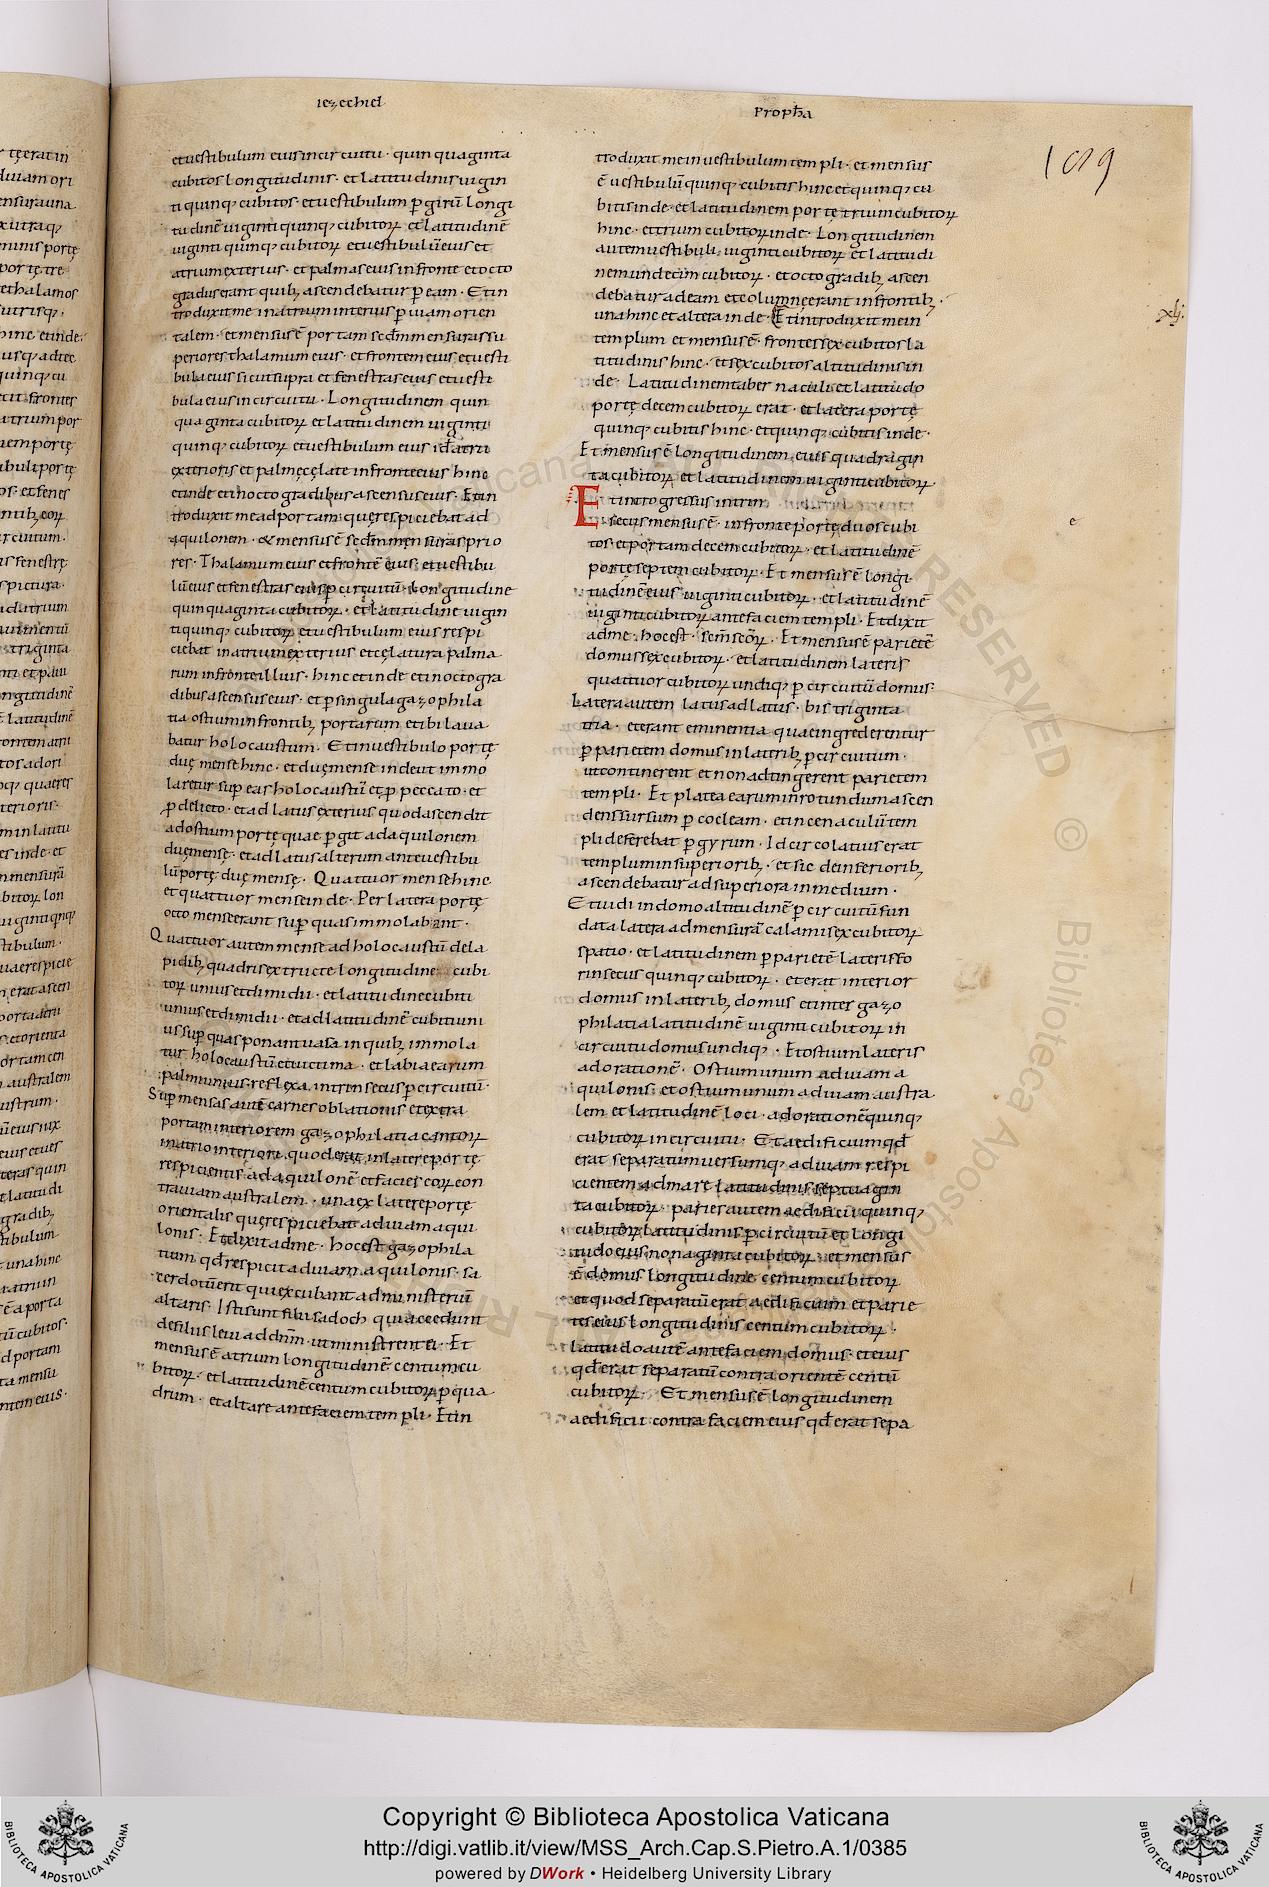 iezechiel
Propħa
189
etuestibulum eiusincircuitu · quinquaginta
cubitos longitudinis · etlatitudinisuigin
tiquinq; cubitos · etuestibulum p girū longi
tudinē uiginti quinq; cubitoꝝ etlatitudinē
uiginti quinq; cubitoꝝ etuestibulūeius et
atriumexterius · et palmaseius infronte etocto
graduserant quib; ascendebatur p eam · Etin
troduxitme inatriuminterius p uiam orien
talem · etmensusē portam secdm mensurassu
periores thalamum eius · etfrontem eius etuesti
bulaeius sicutsupra etfenestraseius etuesti
bulaeiusincircuitu · Longitudinem quin
quaginta cubitoꝝ etlatitudinem uiginti
quinq; cubitoꝝ etuestibulum eius id atrii
exterioris et palmęcęlate infronteeius hinc
etinde etinocto gradibus ascensuseius · Etin
troduxit meadportam quęrespiciebat ad
aquilonem · & mensusē secdm mensurasprio
res · Thalamumeius etfrontē eius etuestibu
lūeius etfenestras eius p circuitū · Longitudine
quinquaginta cubitoꝝ · et latitudine uigin
tiquinq; cubitoꝝ etuestibulum eius respi
ciebat inatriumexterius etcęlatura palma
rum infronteilluis · hinc etinde etinoctogra
dibusascensuseius · etpsingulagazophila
tia ostiuminfrontib; portarum etibi laua
batur holocaustum · Etinuestibulo portę
duę mensehinc · etduęmense indeut immo
laretur sup eas holocaustū etp peccato · et
p delicto · etad latus exterius quodascendit
adostium portę quae pgit adaquilonem
duęmensę · etadlatusalterum anteuestibu
lū portę duę mensę · Quattuor mensehinc
etquattuor menseinde · Per latera portę
octo menseerant sup quasimmolabant ·
Quattuor autem mense ad holocaustū dela
pidib; quadrisextructe longitudine cubi
toꝝ unius etdimidii · etlatitudinecubiti
unius etdimidii · etadlatitudinē cubitiuni
us sup quas ponantuasa inquib; immola
tur holocaustū etuictima · etlabiaearum
palmiunius reflexa intrinsecus p circuitū ·
Sup mensas autē carnes oblationis etextra
portam interiorem gazophilatiacantoꝝ
inatriointeriori quoderat inlatereportę
respicientis adaquilonē etfacies eoꝝ con
trauiam australem · unaex latereportę
orientalis quęrespiciebat aduiam aqui
lonis · Etdixitadme · hocest gazophila
tium qd respicit aduiam aquilonis · sa
cerdotūerit quiexcubant administeriū
altaris · Istisunt filii sadoch quiaccedunt
defiliis leui addnm · utministrentei · Et
mensusē atrium longitudinē centumcu
bitoꝝ · etlatitudinē centum cubitoꝝ p qua
drum · etaltare antefaciem templi · Etin
troduxit meinuestibulum templi · et mensus
ē uestibulū quinq; cubitis hinc etquinq; cu
bitisinde · etlatitudinem portę trium cubitoꝝ
hinc · ettrium cubitoꝝinde · Longitudinem
autemuestibuli uiginticubitoꝝ etlatitudi
nemundecim cubitoꝝ · etocto gradib; ascen
debaturadeam etcolumnęerant infrontib;
unahinc etaltera inde · Etintroduxit mein
xlj·
templum et mensusē · frontessex cubitos la
titudinis hinc · etsex cubitos altitudinis in
de · Latitudinemtabernaculi et latitudo
portę decem cubitoꝝ erat · et latera portę
quinq; cubitis hinc · etquinq; cubitis inde ·
Et mensusē longitudinem eius quadragin
ta cubitoꝝ et latitudinem uiginticubitoꝝ
Etintrogressus intrin
secus mensusē · infronteportę duos cubi
tos · etportam decem cubitoꝝ · et latitudinē
portę septem cubitoꝝ · Et mensusē longi
tudinēeius uiginticubitoꝝ · et latitudinē
uiginticubitoꝝ antefaciem templi · Etdixit
adme · hocest · scm scoꝝ · Et mensusē parietē
domussexcubitoꝝ · et latitudinem lateris
quattuor cubitoꝝ undiq; p circuitū domus ·
Lateraautem latusadlatus · bis triginta
tria · eterant eminentia quaeingrederentur
p parietem domus in latrib; p circuitum ·
utcontinerent et non adtingerent parietem
templi · Et platea earuminrotundumascen
denssursum p cocleam · etincenaculūtem
pli deferebat p gyrum · Idcircolatiuserat
templuminsuperiorib; · et sic deinferiorib;
ascendebatur adsuperiora inmedium ·
Etuidi indomoaltitudinē p circuitū fun
data latera admensurā calamisexcubitoꝝ
spatio · et latitudinem p parietē laterisfo
rinsecus quinq; cubitoꝝ · eterat interior
domus inlaterib; domus etinter gazo
philatialatitudinē uiginti cubitoꝝ in
circuitudomusundiq; · Etostiumlateris
adorationē · Ostiumunum aduiam a
quilonis · etostiumunum aduiamaustra
lem et latitudinē loci · adorationēquinq;
cubitoꝝ incircuitu · Etaedificiumqd
erat separatumuersumq; aduiam respi
cientem admare latitudinis septuagin
ta cubitoꝝ · paries autem aedificii quinq;
cubitoꝝ latitudinis p circuitū et longi
tudoeius nonaginta cubitoꝝ · et mensus
ē domus longitudine centum cubitoꝝ
et quod separatūerat aedificium et parie
tes eius longitudinis centum cubitoꝝ ·
latitudo autē antefaciem domus · eteius
qderat separatū contra orientē centū
cubitoꝝ · Et mensusē longitudinem
aedificii contra faciemeius qderat sepa
Copyright © Biblioteca Apostolica Vaticana
http://digi.vatlib.it/view/MSS_Arch.Cap.S.Pietro.A.1/0385
powered by DWork • Heidelberg University Library
BIBLIOTECA APOSTOLICA VATICANA
BIBLIOTECA APOSTOLICA VATICANA